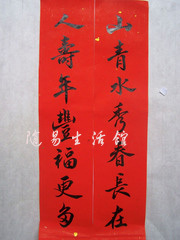 山青水秀春長在
人壽年豐福更多
隨易生活館